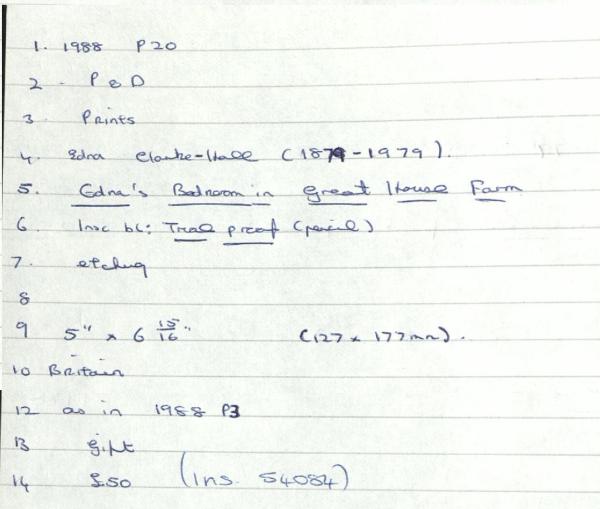 1. 1988 P20
2. P & D
3 Prints
4. Edna Clarke-Hall (1879-1979).
5. Edna's Bedroom in Great House Farm
6 Insc bl: Trial proof (pencil)
7. etching
8
9 5" x 6 15/16" (127 x 177mm).
10 Britain
12 as in 1988 P3
13 gift
14 £50 (Ins. 54084)